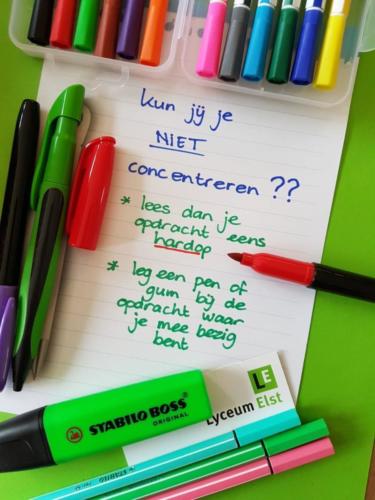 kun jij je
NIET
concentreren ??
* lees dan je
opdracht eens
hardop
* leg een pen of
gum bij de
opdracht waar
je mee bezig
bent
LE
Lyceum Elst
STABILO BOSS
ORIGINAL